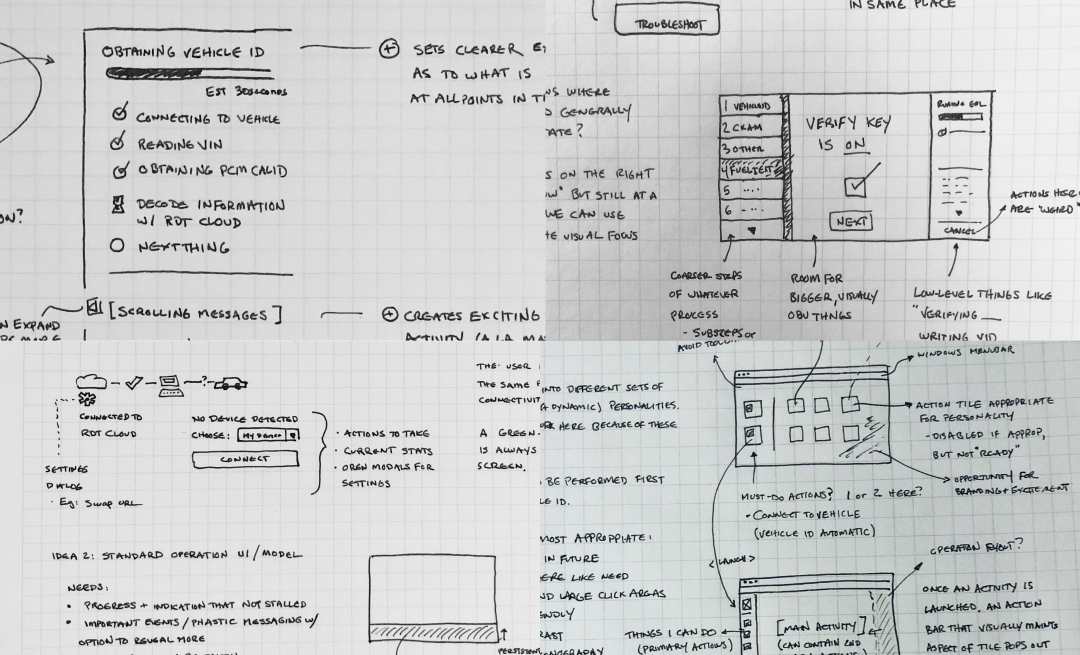 OBTAINING VEHICLE ID
EST 30 SECONDS
CONNECTING TO VEHICLE
READING VIN
OBTAINING PCM CALID
DECODE INFORMATION
W/ RDT CLOUD
NEXT THING
[SCROLLING MESSAGES]
ON?
N EXPAND
+ SETS CLEARER
AS TO WHAT IS
AT ALL POINTS IN
+ CREATES EXCITING
TROUBLESHOOT
IN SAME PLACE
WHERE
GENERALLY
ATE?
S ON THE RIGHT
BUT STILL AT A
WE CAN USE
VISUAL FOCUS
1 VEHICLE ID
2 CKAM
3 OTHER
4 FUEL TEST
5 ....
6 ....
VERIFY KEY
IS ON
NEXT
RUNNING EOL
CANCEL
ACTIONS HERE
ARE "WEIRD"
COARSER STEPS
OF WHATEVER
PROCESS
- SUBSTEPS OF
ROOM FOR
BIGGER, VISUALLY
OBV THINGS
LOW-LEVEL THINGS LIKE
"VERIFYING __
WRITING VID
?
CONNECTED TO
RDT CLOUD
SETTINGS
DIALOG
· EG: SWAP URL
NO DEVICE DETECTED
CHOOSE: MY DEVICE
CONNECT
· ACTIONS TO TAKE
· CURRENT STATS
· OPEN MODALS FOR
SETTINGS
THE USER
THE SAME
CONNECTIVIT
A GREEN
IS ALWAYS
SCREEN.
IDEA 2: STANDARD OPERATION UI/MODEL
NEEDS:
• PROGRESS + INDICATION THAT NOT STALLED
• IMPORTANT EVENTS / PHASTIC MESSAGING W/
OPTION TO REVEAL MORE
PERSISTENT
AVOID
INTO DIFFERENT SETS OF
DYNAMIC) PERSONALITIES.
HERE BECAUSE OF THESE
BE PERFORMED FIRST
LE ID.
MOST APPROPRIATE:
IN FUTURE
ERE LIKE NEED
ND LARGE CLICK AREAS
ENDLY
WINDOWS MENUBAR
ACTION TILE APPROPRIATE
FOR PERSONALITY
- DISABLED IF APPROP,
BUT NOT "READY"
OPPORTUNITY FOR
BRANDING + EXCITEMENT
MUST-DO ACTIONS? 1 OR 2 HERE?
• CONNECT TO VEHICLE
(VEHICLE ID AUTOMATIC)
<LAUNCH>
OPERATION FLYOUT?
THINGS I CAN DO
(PRIMARY ACTIONS)
[MAIN ACTIVITY]
(CAN CONTAIN
ONCE AN ACTIVITY IS
LAUNCHED, AN ACTION
BAR THAT VISUALLY MAINTS
ASPECT OF TILE POPS OUT